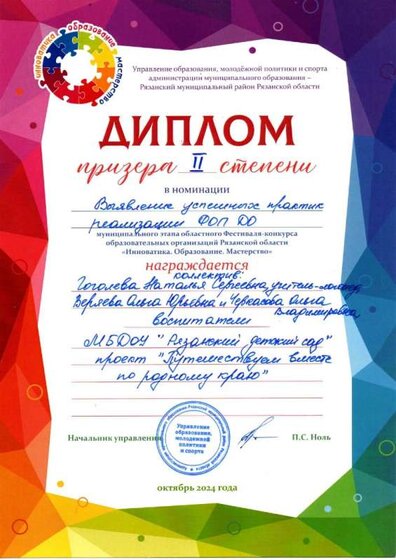 инноватика • образование • мастерство
Управление образования, молодёжной политики и спорта
администрации муниципального образования –
Рязанский муниципальный район Рязанской области
ДИПЛОМ
призера II степени
в номинации
Выявление успешных практик
реализации ФОП ДО
муниципального этапа областного Фестиваля-конкурса
образовательных организаций Рязанской области
«Инноватика. Образование. Мастерство»
награждается
коллектив:
Гоголева Наталья Сергеевна, учитель-логопед
Веряева Ольга Юрьевна и Черкасова Ольга
Владимировна,
воспитатели
МБДОУ "Рязанский детский сад"
проект "Путешествуем вместе
по родному краю"
Управление
образования,
молодежной
политики
и спорта
Начальник управления
П.С. Ноль
октябрь 2024 года